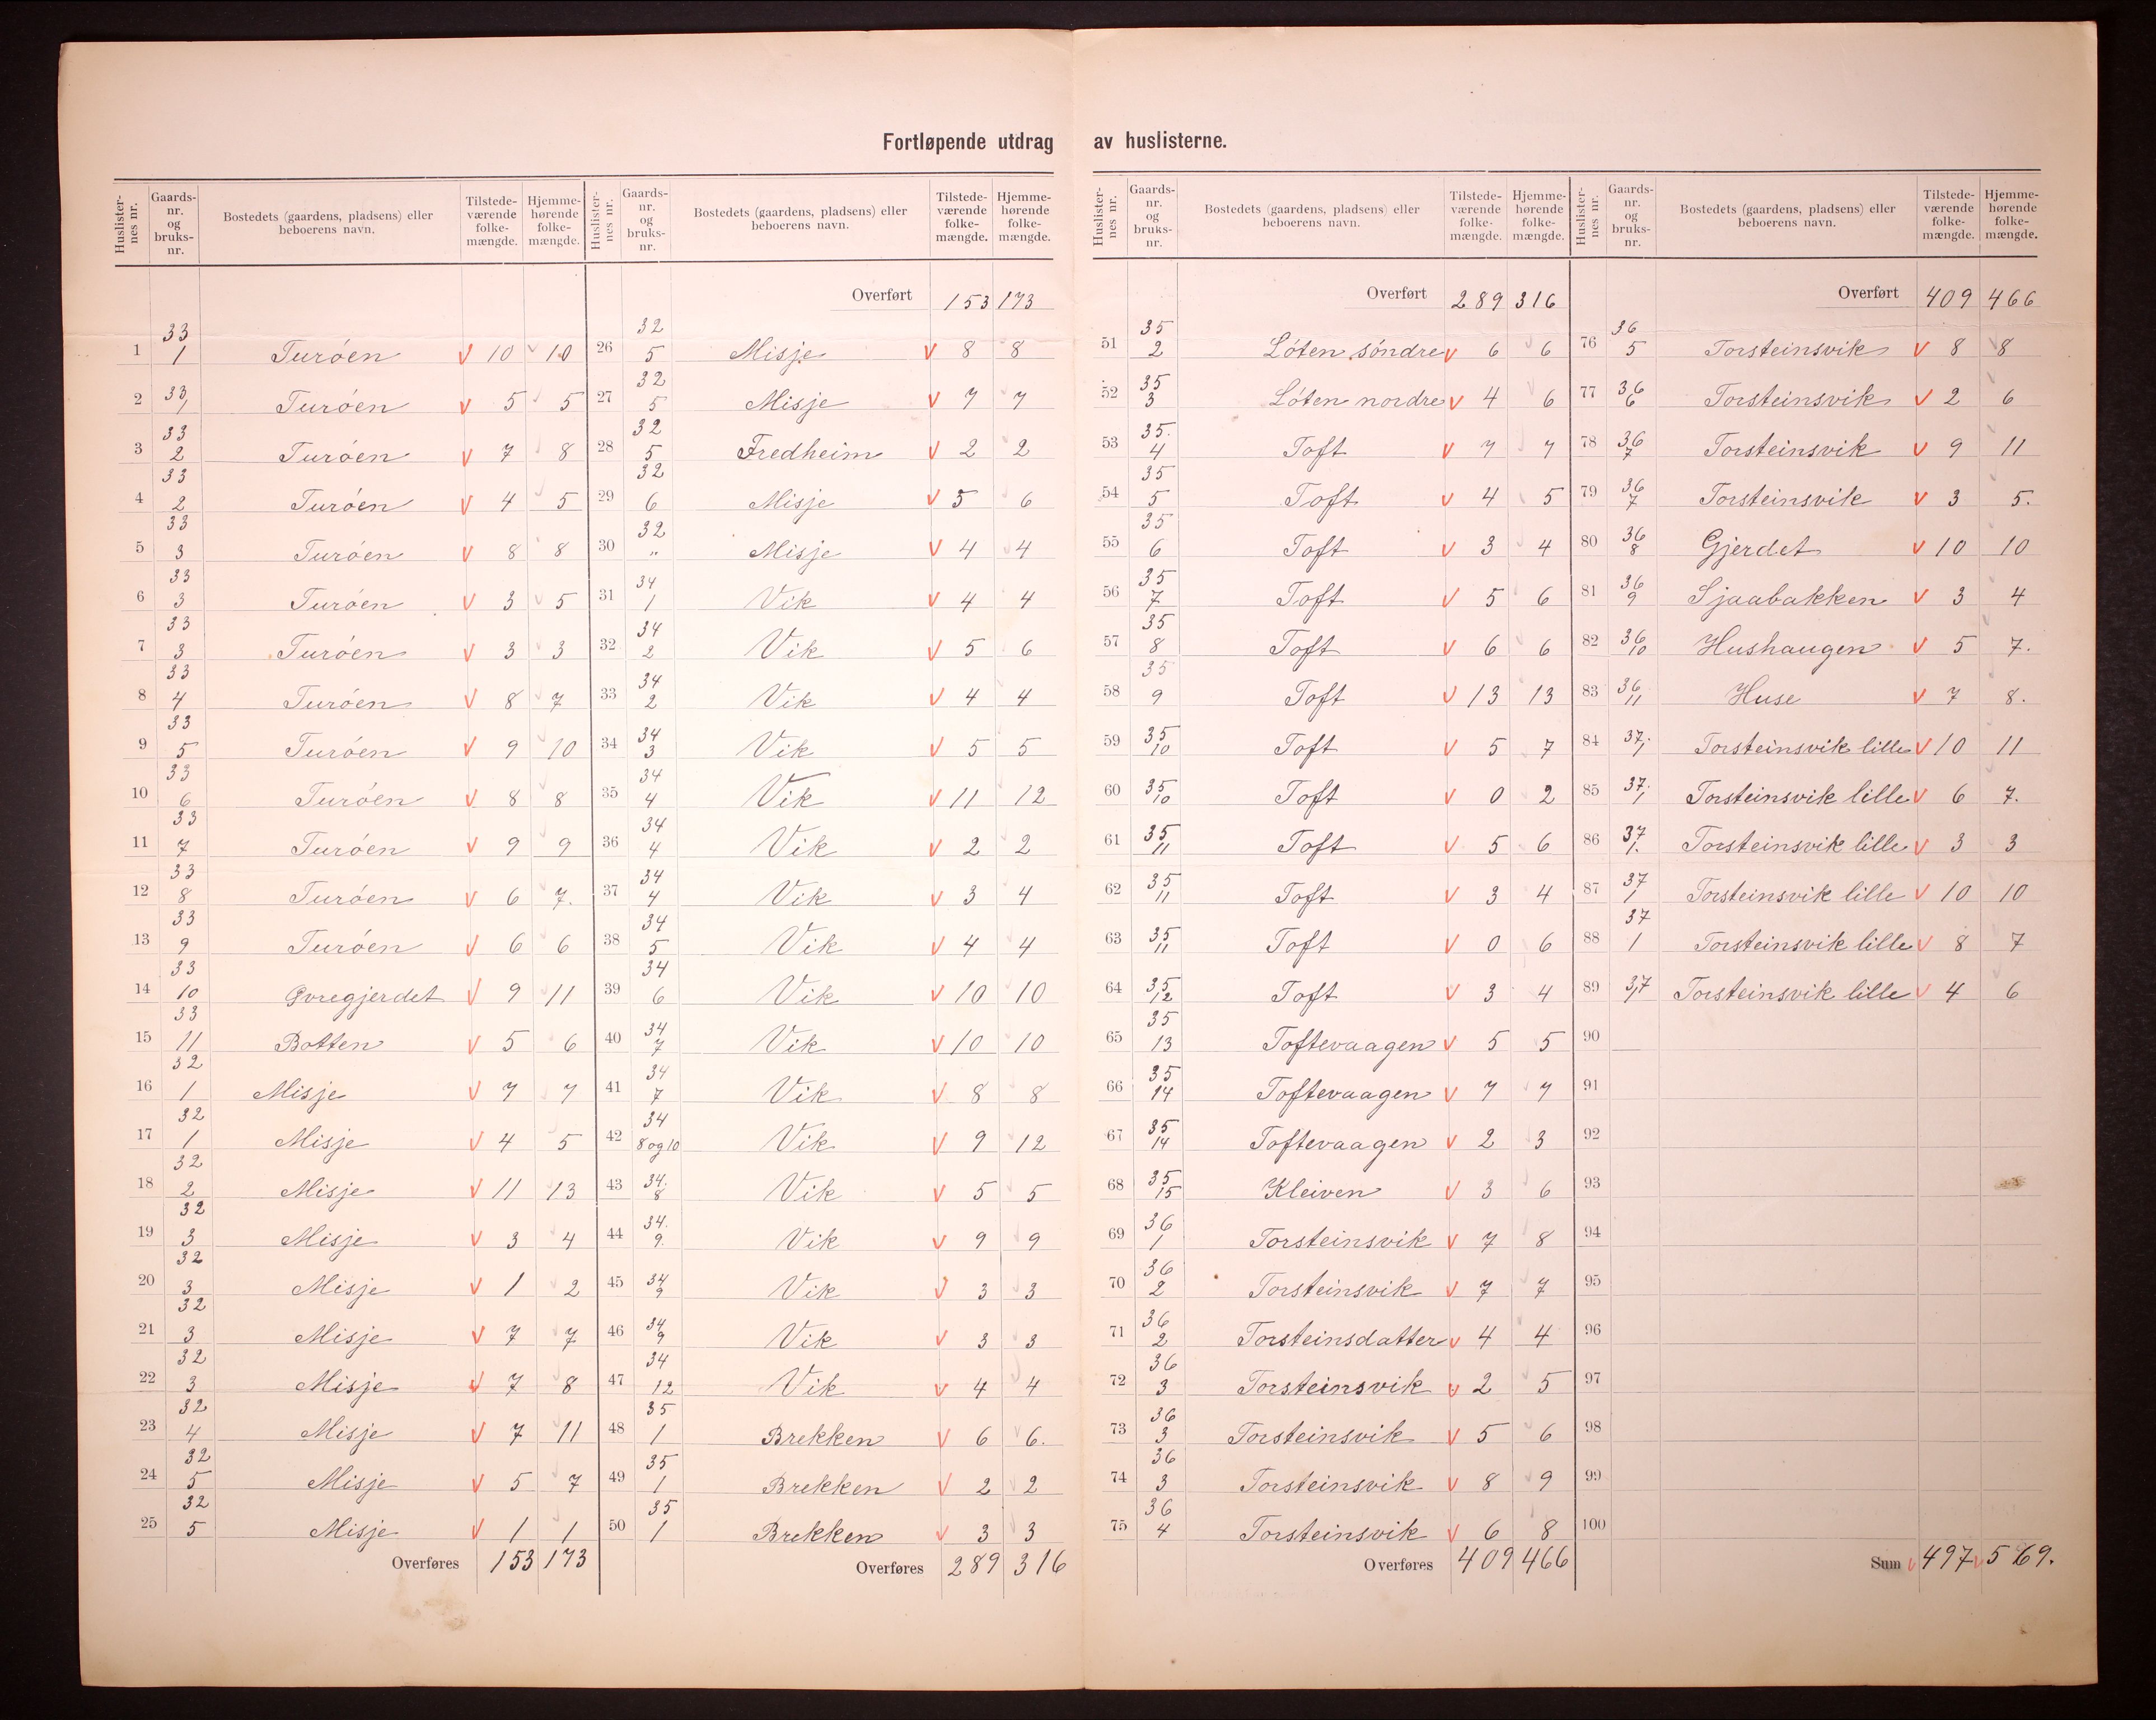 Fortløpende utdrag av huslisterne.
Huslister-nes nr. Gaards-nr. og bruks-nr. Bostedets (gaardens, pladsens) eller beboerens navn. Tilstede-værende folke-mængde. Hjemme-hørende folke-mængde.
1 33/1 Turöen V 10 10
2 33/1 Turöen V 5 5
3 33/2 Turöen V 7 8
4 33/2 Turöen V 4 5
5 33/3 Turöen V 8 8
6 33/3 Turöen V 3 5
7 33/3 Turöen V 3 3
8 33/4 Turöen V 8 7
9 33/5 Turöen V 9 10
10 33/6 Turöen V 8 8
11 33/7 Turöen V 9 9
12 33/8 Turöen V 6 7.
13 33/9 Turöen V 6 6
14 33/10 Øvregjerdet V 9 11
15 33/11 Botten V 5 6
16 32/1 Misje V 7 7
17 32/1 Misje V 4 5
18 32/2 Misje V 11 13
19 32/3 Misje V 3 4
20 32/3 Misje V 1 2
21 32/3 Misje V 7 7
22 32/3 Misje V 7 8
23 32/4 Misje V 7 11
24 32/5 Misje V 5 7
25 32/5 Misje V 1 1
Overføres 153 173
Huslister-nes nr. Gaards-nr. og bruks-nr. Bostedets (gaardens, pladsens) eller beboerens navn. Tilstede-værende folke-mængde. Hjemme-hørende folke-mængde.
Overført 153 173
26 32/5 Misje V 8 8
27 32/5 Misje V 7 7
28 32/5 Fredheim V 2 2
29 32/6 Misje V 5 6
30 32/" Misje V 4 4
31 34/1 Vik V 4 4
32 34/2 Vik V 5 6
33 34/2 Vik V 4 4
34 34/3 Vik V 5 5
35 34/4 Vik V 11 12
36 34/4 Vik V 2 2
37 34/4 Vik V 3 4
38 34/5 Vik V 4 4
39 34/6 Vik V 10 10
40 34/7 Vik V 10 10
41 34/7 Vik V 8 8
42 34/8 og 10 Vik V 9 12
43 34./8 Vik V 5 5
44 34./9. Vik V 9 9
45 34/9 Vik V 3 3
46 34/9 Vik V 3 3
47 34/12 Vik V 4 4
48 35/1 Brekken V 6 6.
49 35/1 Brekken V 2 2
50 35/1 Brekken V 3 3
Overføres 289 316
Huslister-nes nr. Gaards-nr. og bruks-nr. Bostedets (gaardens, pladsens) eller beboerens navn. Tilstede-værende folke-mængde. Hjemme-hørende folke-mængde.
Overført 289 316
51 35/2 Löten söndre V 6 6
52 35/3 Löten nordre V 4 6
53 35./4 Toft V 7 7
54 35/5 Toft V 4 5
55 35/6 Toft V 3 4
56 35/7 Toft V 5 6
57 35/8 Toft V 6 6
58 35/9 Toft V 13 13
59 35/10 Toft V 5 7
60 35/10 Toft V 0 2
61 35/11 Toft V 5 6
62 35/11 Toft V 3 4
63 35/11 Toft V 0 6
64 35/12 Toft V 3 4
65 35/13 Toftevaagen V 5 5
66 35/14 Toftevaagen V 7 7
67 35/14 Toftevaagen V 2 3
68 35/15 Kleiven V 3 6
69 36/1 Torsteinsvik V 7 8
70 36/2 Torsteinsvik V 7 7
71 36/2 Torsteinsdatter V 4 4
72 36/3 Torsteinsvik V 2 5
73 36/3 Torsteinsvik V 5 6
74 36/3 Torsteinsvik V 8 9
75 36/4 Torsteinsvik V 6 8
Overføres 409 466
Huslister-nes nr. Gaards-nr. og bruks-nr. Bostedets (gaardens, pladsens) eller beboerens navn. Tilstede-værende folke-mængde. Hjemme-hørende folke-mængde.
Overført 409 466
76 36/5 Torsteinsvik V 8 8
77 36/6 Torsteinsvik V 2 6
78 36/7 Torsteinsvik V 9 11
79 36/7 Torsteinsvik V 3 5.
80 36/8 Gjerdet V 10 10
81 36/9 Sjaabakken V 3 4
82 36/10 Hushaugen V 5 7.
83 36/11 Huse V 7 8.
84 37./1 Torsteinsvik lille V 10 11
85 37./1 Torsteinsvik lille V 6 7.
86 37/1. Torsteinsvik lille V 3 3
87 37/1 Torsteinsvik lille V 10 10
88 37/1 Torsteinsvik lille V 8 7
89 37/1 Torsteinsvik lille V 4 6
90
91
92
93
94
95
96
97
98
99
100
Sum V 497 V 569.